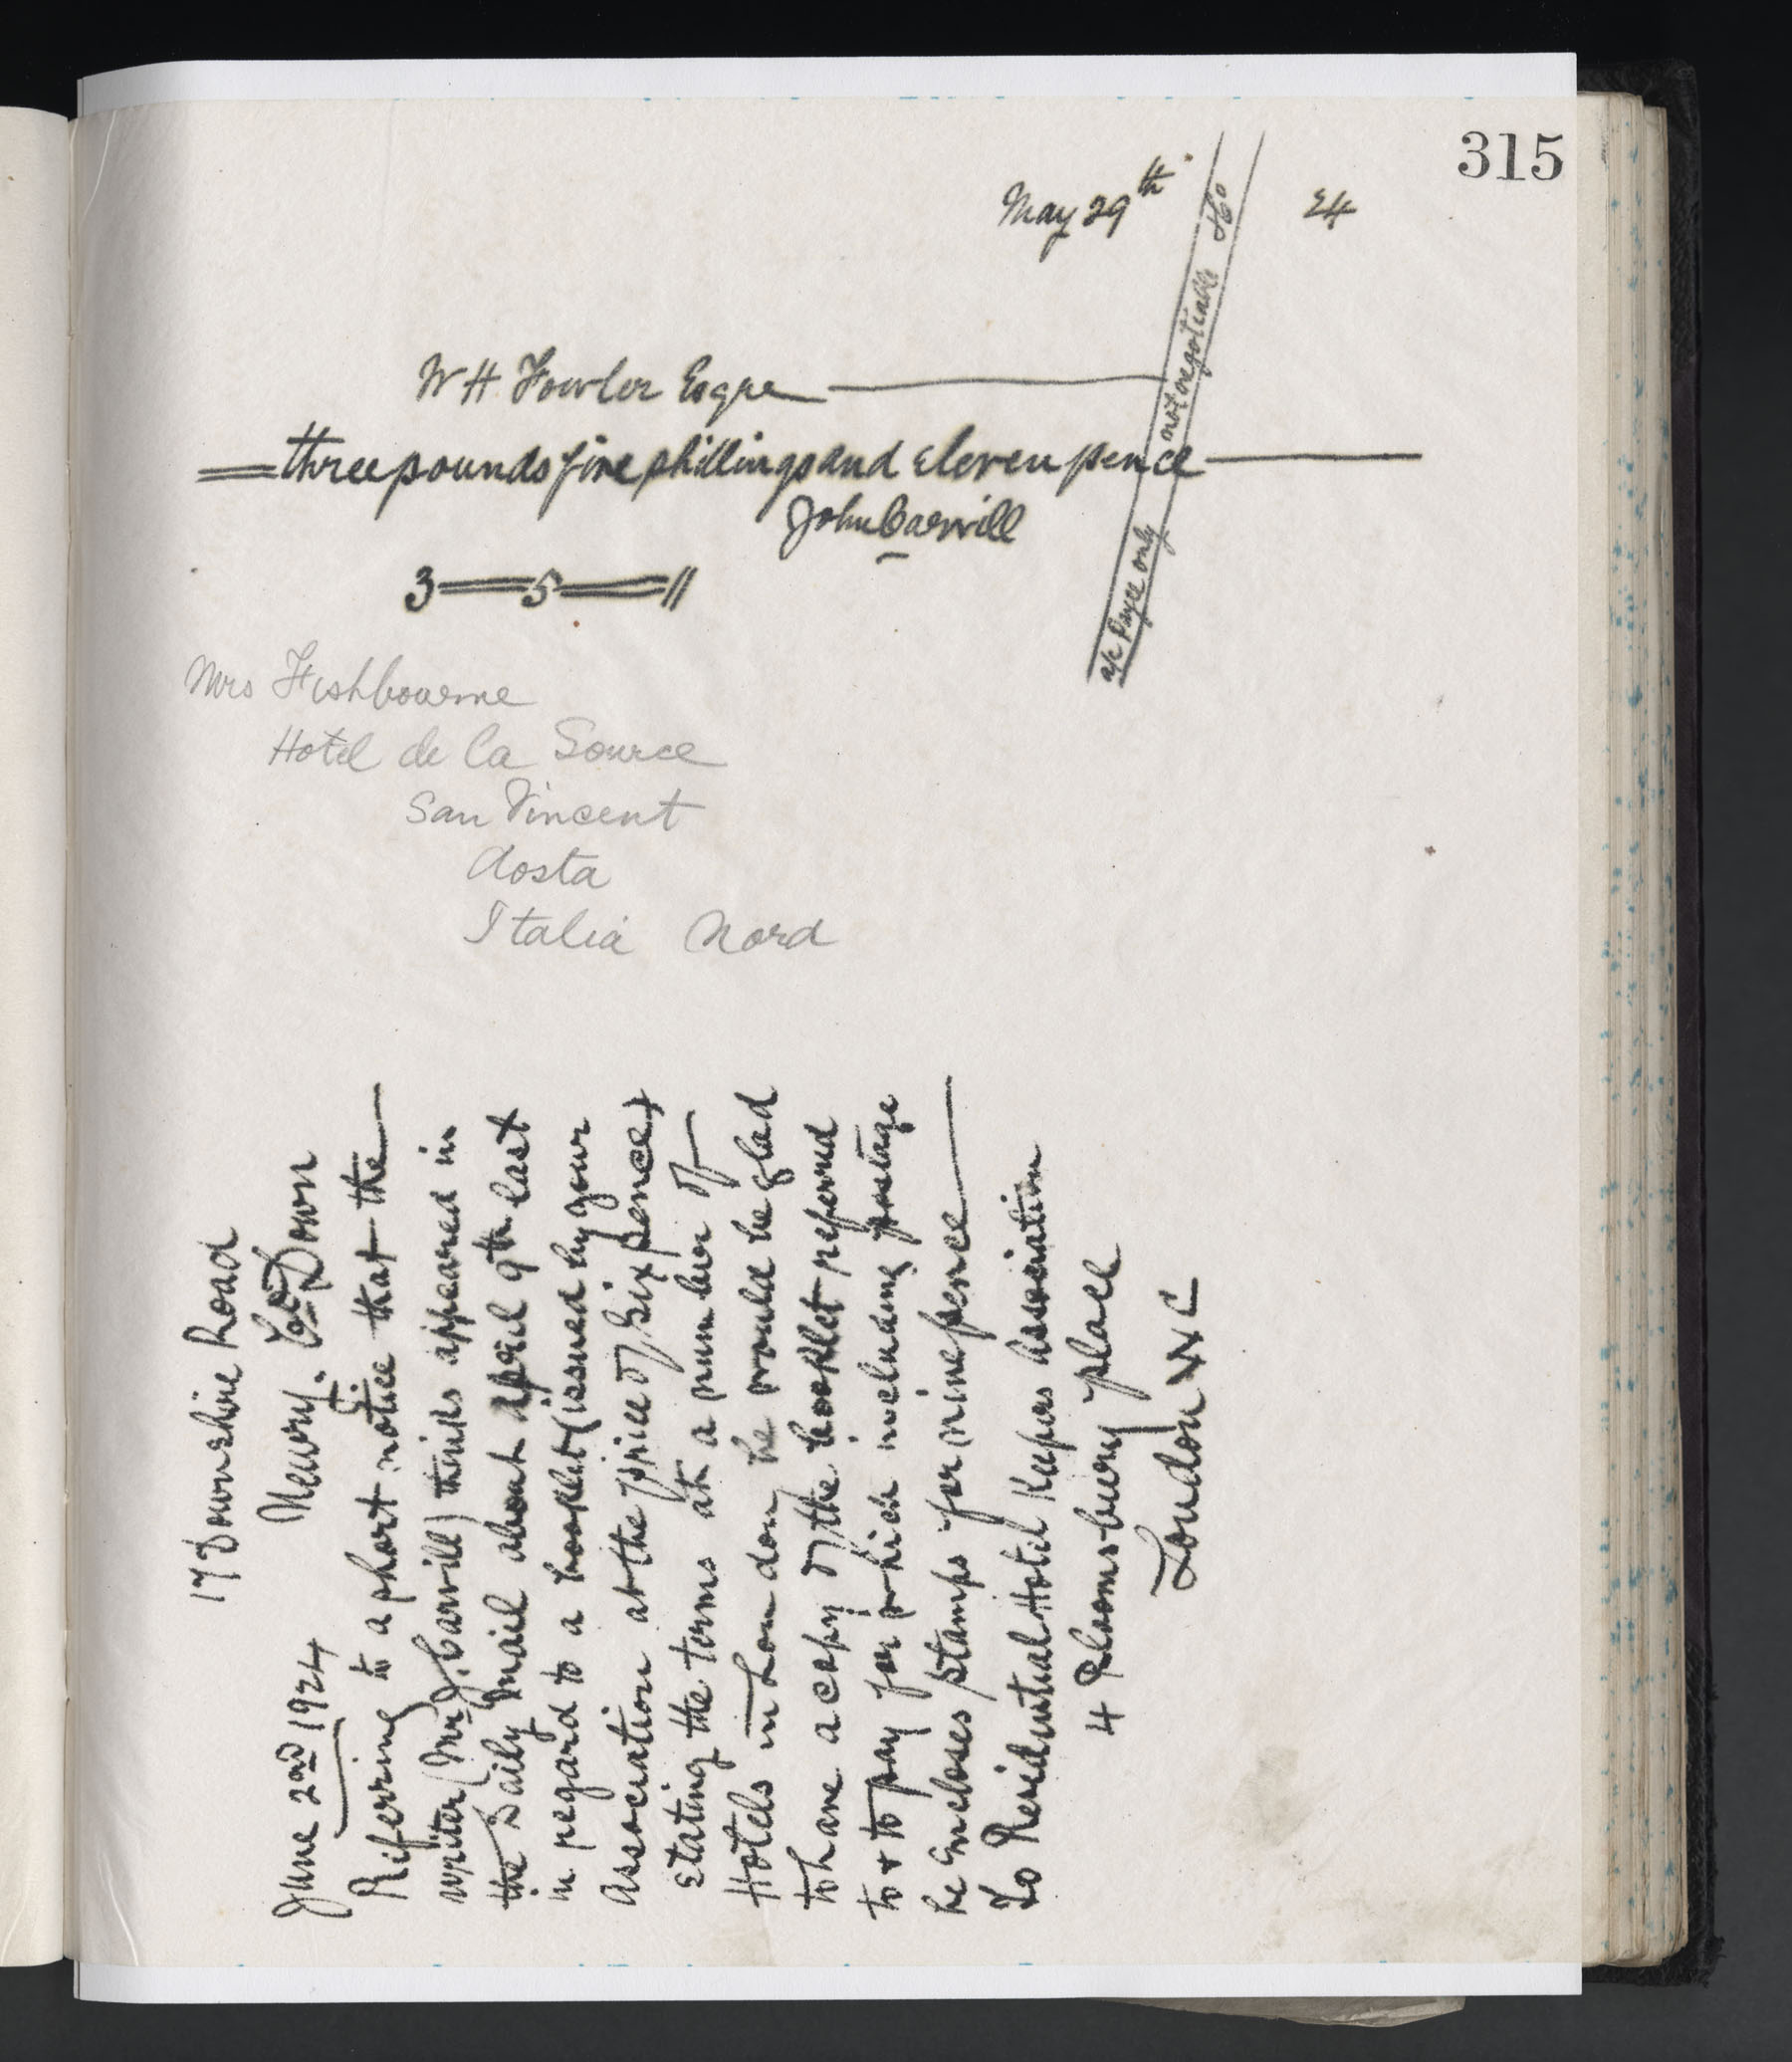 315
May 29th 24
& Co
not negotiable
a/c Payee only
W H Fowler Esqre
three pounds five shillings and eleven pence
John Carvill
3 = 5 = 11
Mrs Fishbourne
Hotel de la Source
San Vincent
Aosta
Italia Nord
17 Downshire Road
Newry. Co. Down
June 2nd 1924
Referring to a short notice that the
writer (Mr J. Carvill) thinks appeared in
the Daily Mail about April 9th last
in regard to a booklet (issued by your
Association at the price of Six pence)
stating the terms at a number of
Hotels in London he would be glad
to have a copy of the booklet referred
to & to pay for which including postage
he encloses stamps for ninepence
To Residential Hotel Keepers Association
4 Bloomsbury place
London W C